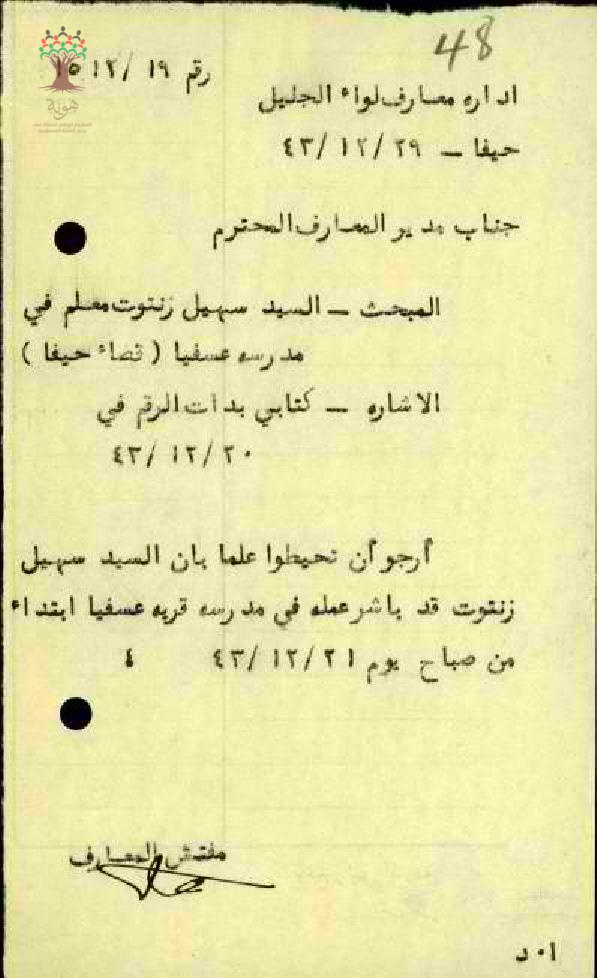 48
رقم ١٩ /١٢/ ١٥
اداره معارف لواء الجليل
حيفا – ٢٩ /١٢ /٤٣
جناب مدير المعارف المحترم
المبحث – السيد سهيل زنتوت معلم في
مدرسه عسفيا ( قضاء حيفا )
الاشاره – كتابي بذات الرقم في
٢٠ /١٢ /٤٣
أرجو أن تحيطوا علما بان السيد سهيل
زنتوت قد باشر عمله في مدرسه قريه عسفيا ابتداء
من صباح يوم ٢١ /١٢ /٤٣ ٤
مفتش المعارف
هوية